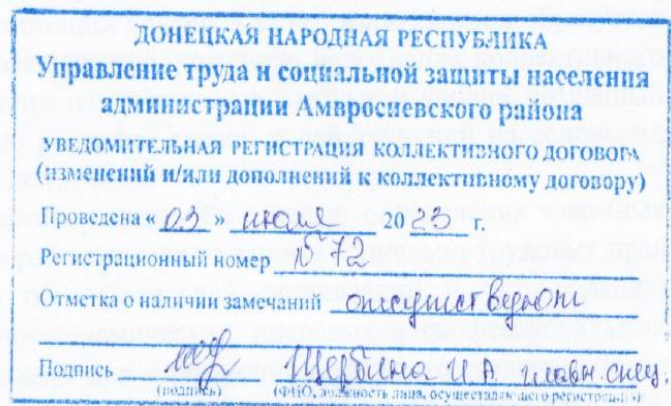 ДОНЕЦКАЯ НАРОДНАЯ РЕСПУБЛИКА
Управление труда и социальной защиты населения
администрации Амвросиевского района
УВЕДОМИТЕЛЬНАЯ РЕГИСТРАЦИЯ КОЛЛЕКТИВНОГО ДОГОВОРА
(изменений и/или дополнений к коллективному договору)
Проведена « 03 » июля 20 23 г.
Регистрационный номер № 72
Отметка о наличии замечаний отсутствуют
Подпись Щербина И.А. главн. спец.
(подпись) (ФИО, должность лица, осуществляющего регистрацию)